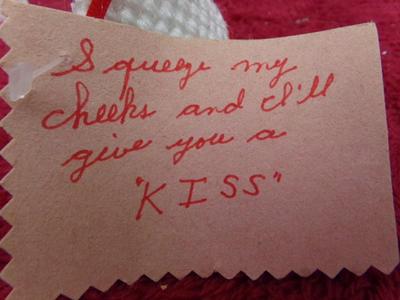 Squeeze my
cheeks and I'll
give you a
"KISS"